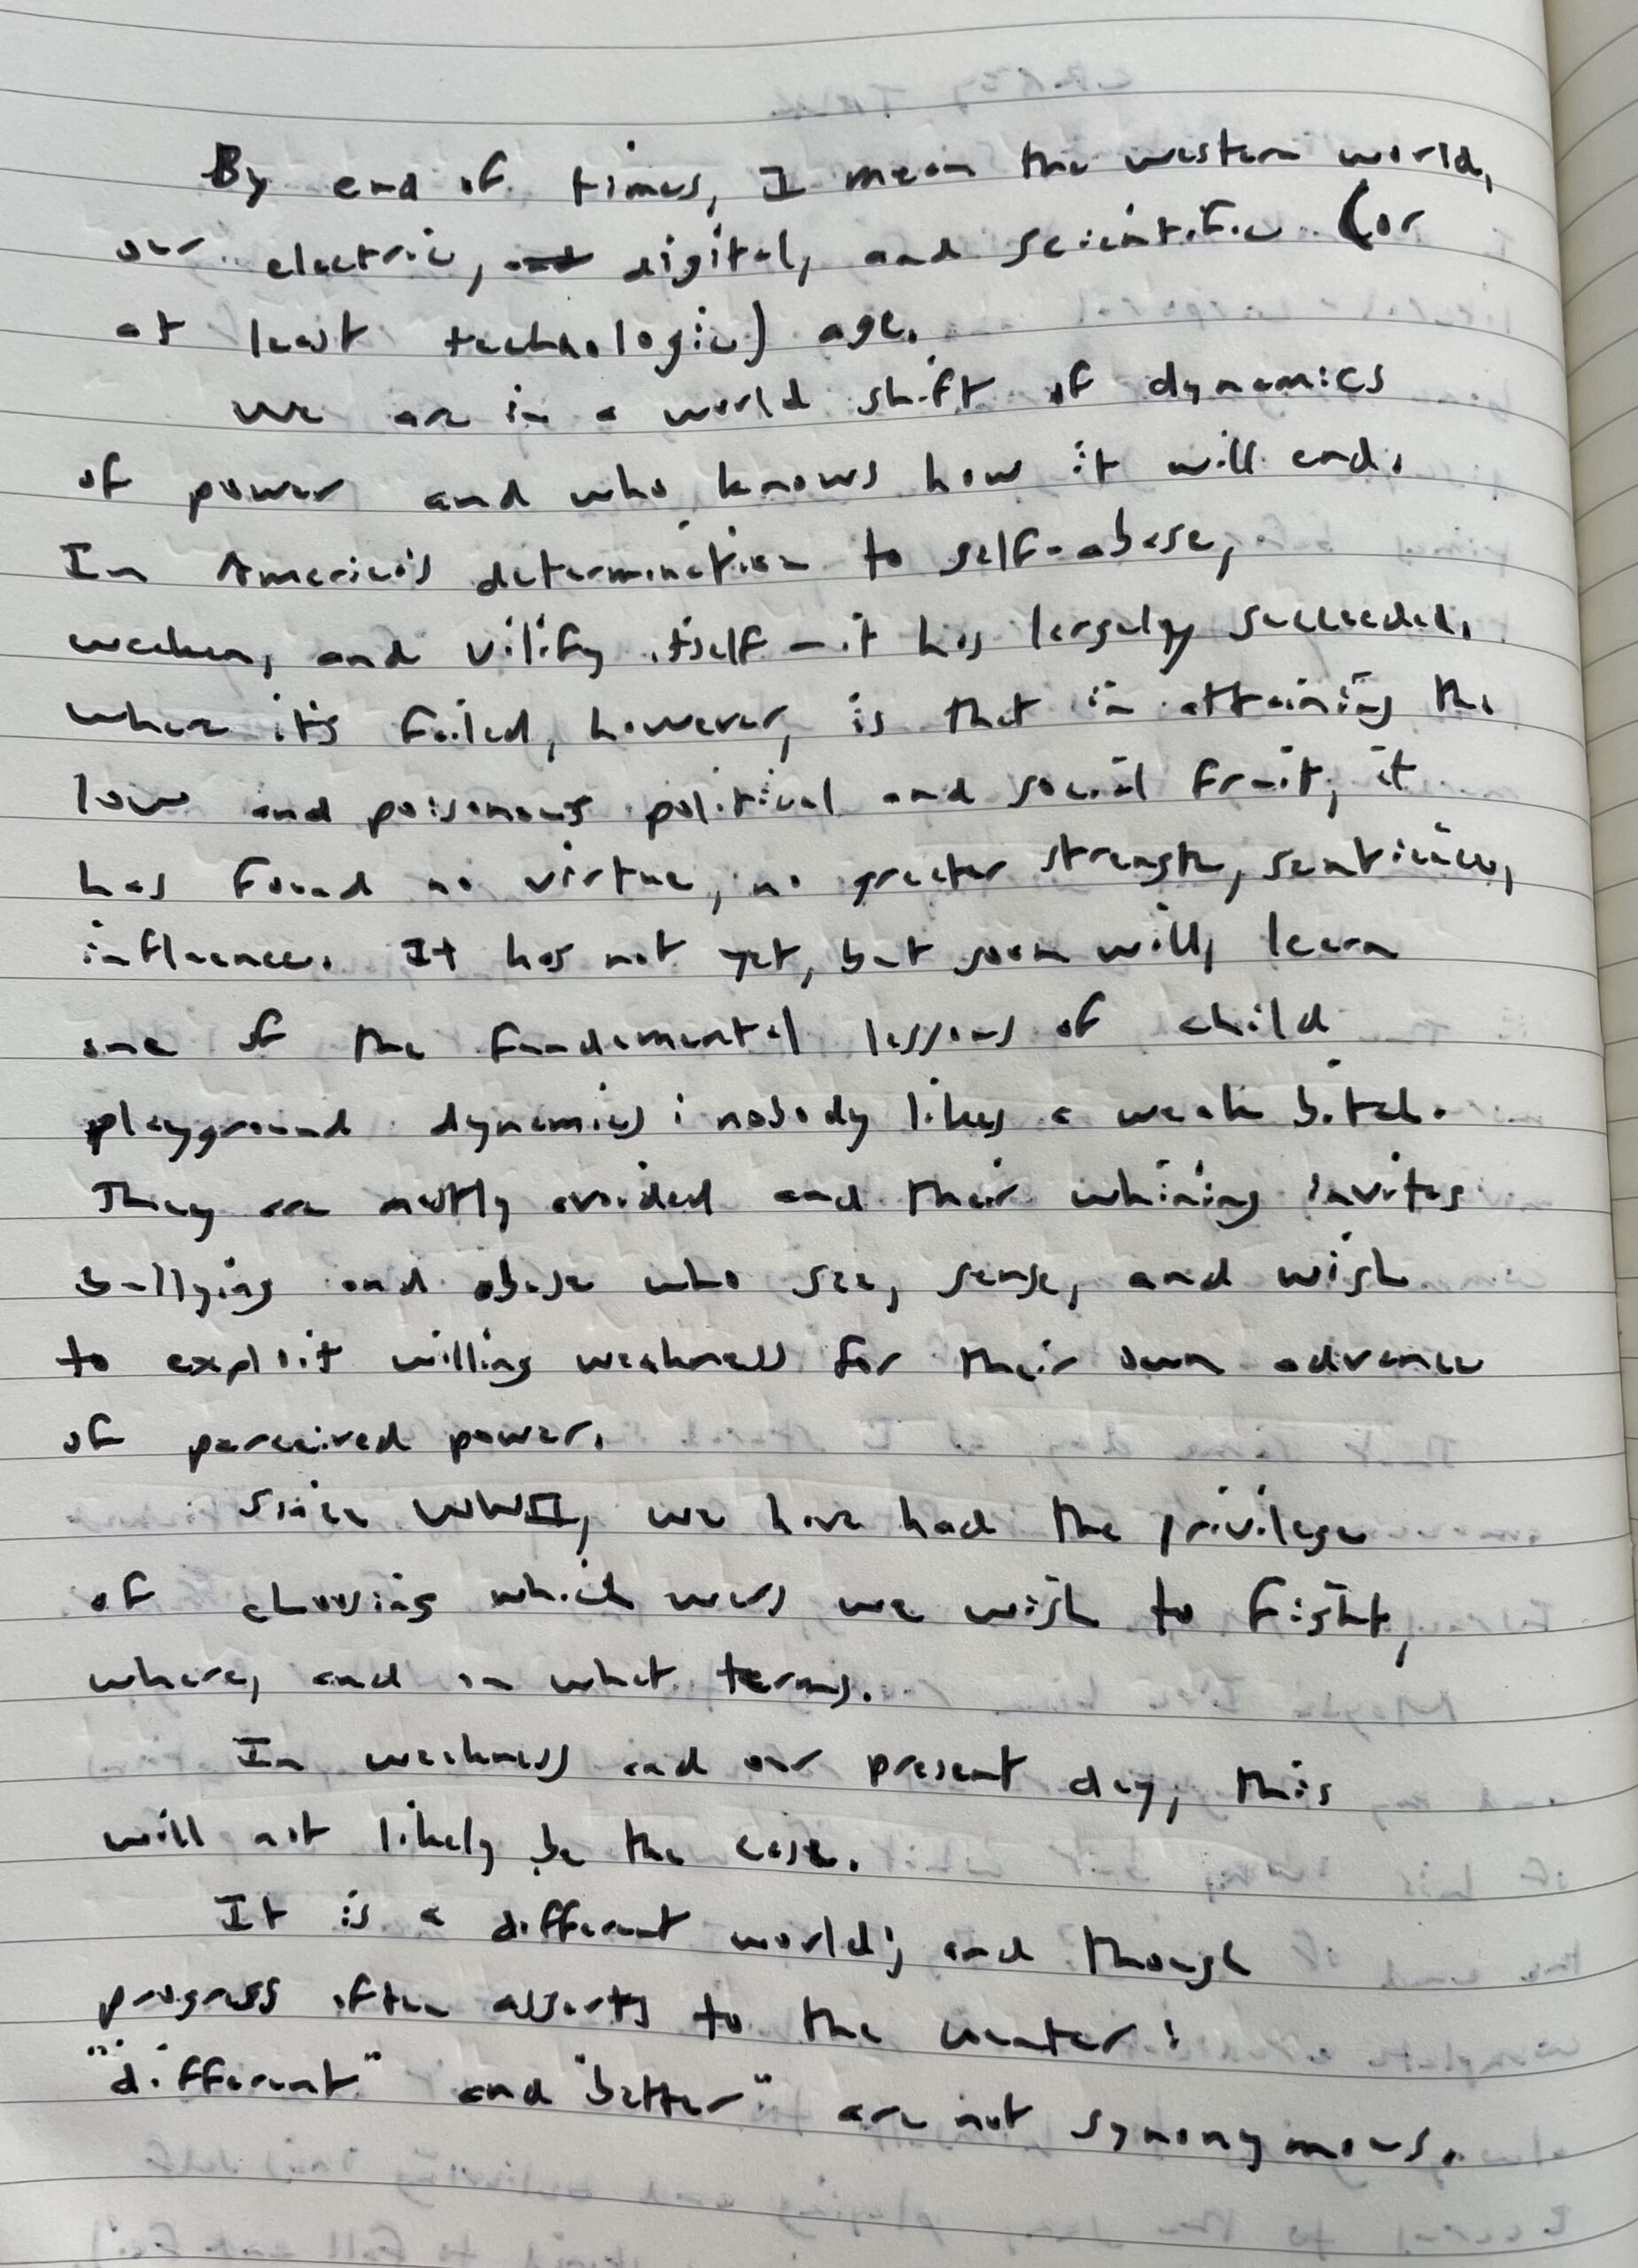 By end of times, I mean the western world,
our electric, and digital, and scientific (or
at least technologic) age.
We are in a world shift of dynamics
of power and who knows how it will end.
In America's determination to self-abuse,
weaken, and vilify itself – it has largely succeeded.
Where it's failed, however, is that in attaining the
low and poisonous political and social fruit, it
has found no virtue, no greater strength, sentience,
influence. It has not yet, but soon will, learn
one of the fundamental lessons of child
playground dynamics: nobody likes a weak bitch.
They are mostly avoided and their whining invites
bullying and abuse who see, sense, and wish
to exploit willing weakness for their own advance
of perceived power.
Since WWII, we have had the privilege
of choosing which wars we wish to fight,
where, and on what terms.
In weakness and our present day, this
will not likely be the case.
It is a different world; and though
progress often asserts to the counter:
"different" and "better" are not synonymous.